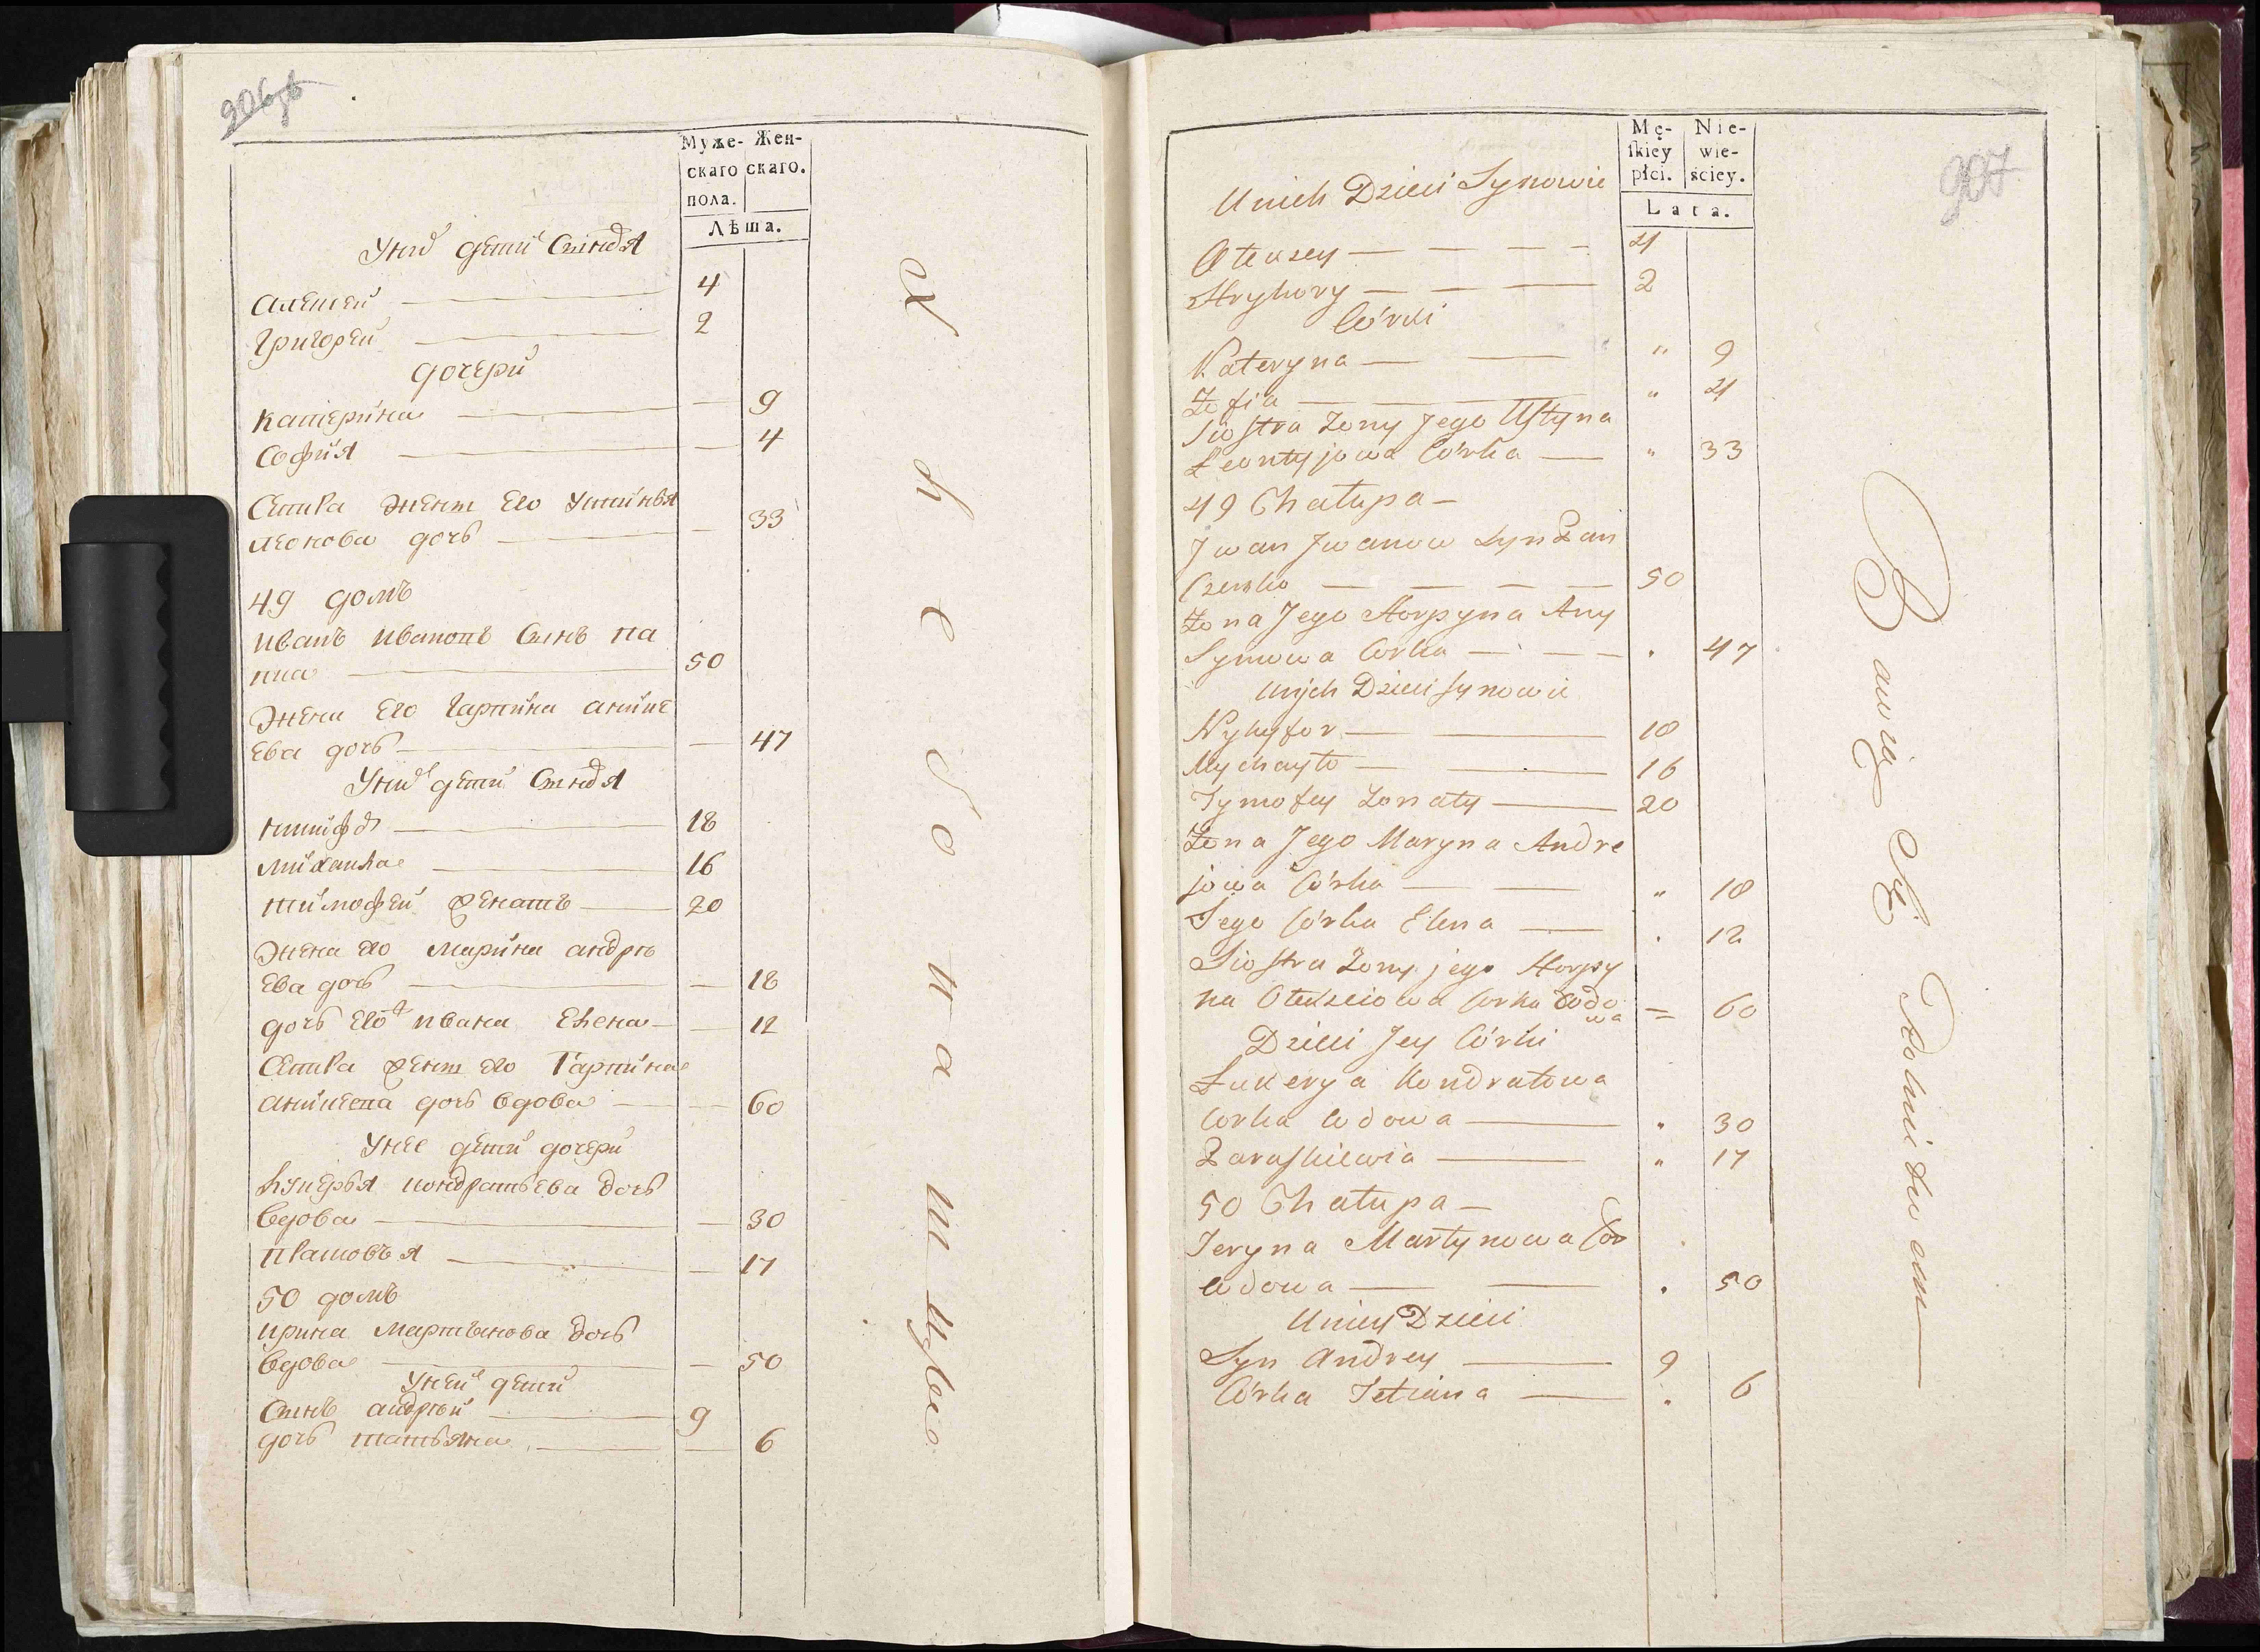 206об
Муже- Жен-
скаго скаго.
пола.
Лѣта.
Унихъ дети Синовя
Алексей 4
Григорей 2
дочери
Катерина 9
София 4
Сестра жены его Устинья
леонова дочь 33
49 домъ
иванъ ивановъ синъ па
50
жена его Гарпина
ева дочь 47
Унихъ дети Синовя
никифоръ 18
михаила 16
тимофей женатъ 20
жена его марина андре
ева дочь 18
дочь его ивана елена 12
Сестра жены его Гарпина
дочь вдова 60
Унее дети дочери
лукерья кондратьева дочь
вдова 30
прасковья 17
50 домъ
ирина мартынова дочь
вдова 50
Уней дети
Синъ андрей 9
дочь татьяна 6
хлебопашцы
907
Mę- Nie-
ſkiey wie-
płci. ściey.
Lata.
Unich Dzieci Synowie
Olexsey 4
Hryhory 2
Córki
Kateryna " 9
Zofia " 4
Siostra Zony Jego Ustyna
Leontyjowa Córka " 33
49 Chałupa
Jwan Jwanow Syn Pan
czenko 50
Zona Jego Horpyna Any
Symowa Corka 47
Unych Dzieci Synowie
Nykyfor 18
Mychayło 16
Tymofey Zonaty 20
Zona Jego Maryna Andre
jowa Córka " 18
Jego Córka Elena 12
Siostra Zony jego Horpy
na Olexiiowa Corka Wdo
wa 60
Dzieci Jey Córki
Łukerya Kondratowa
Corka Wdowa " 30
Paraskiewia " 17
50 Chałupa
Jeryna Martynowa Cor
Wdowa 50
Uniey Dzieci
Syn Andrey 9
Córka Tetiana 6
Bawią Się Rolnictwem